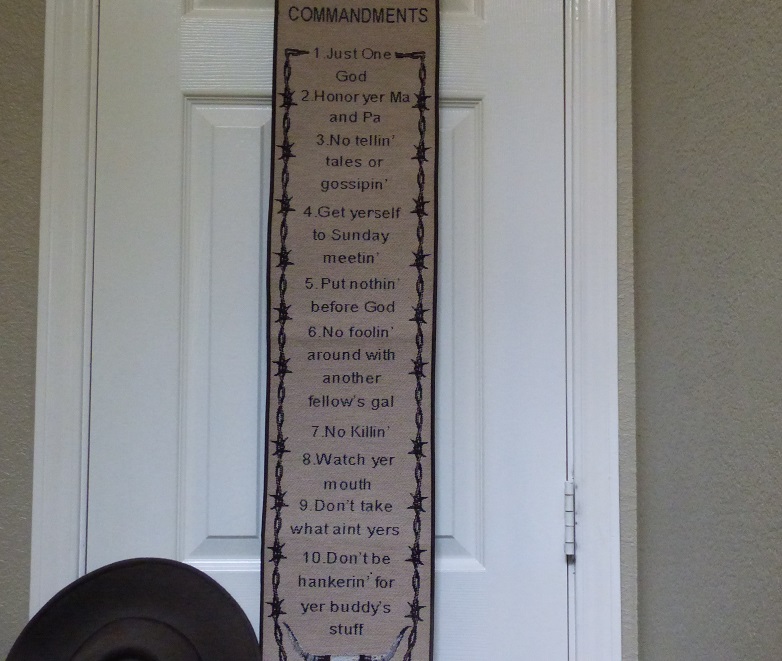 COMMANDMENTS
1.Just One
God
2.Honor yer Ma
and Pa
3.No tellin'
tales or
gossipin'
4.Get yerself
to Sunday
meetin'
5.Put nothin'
before God
6.No foolin'
around with
another
fellow's gal
7.No Killin'
8.Watch yer
mouth
9.Don't take
what aint yers
10.Don't be
hankerin' for
yer buddy's
stuff